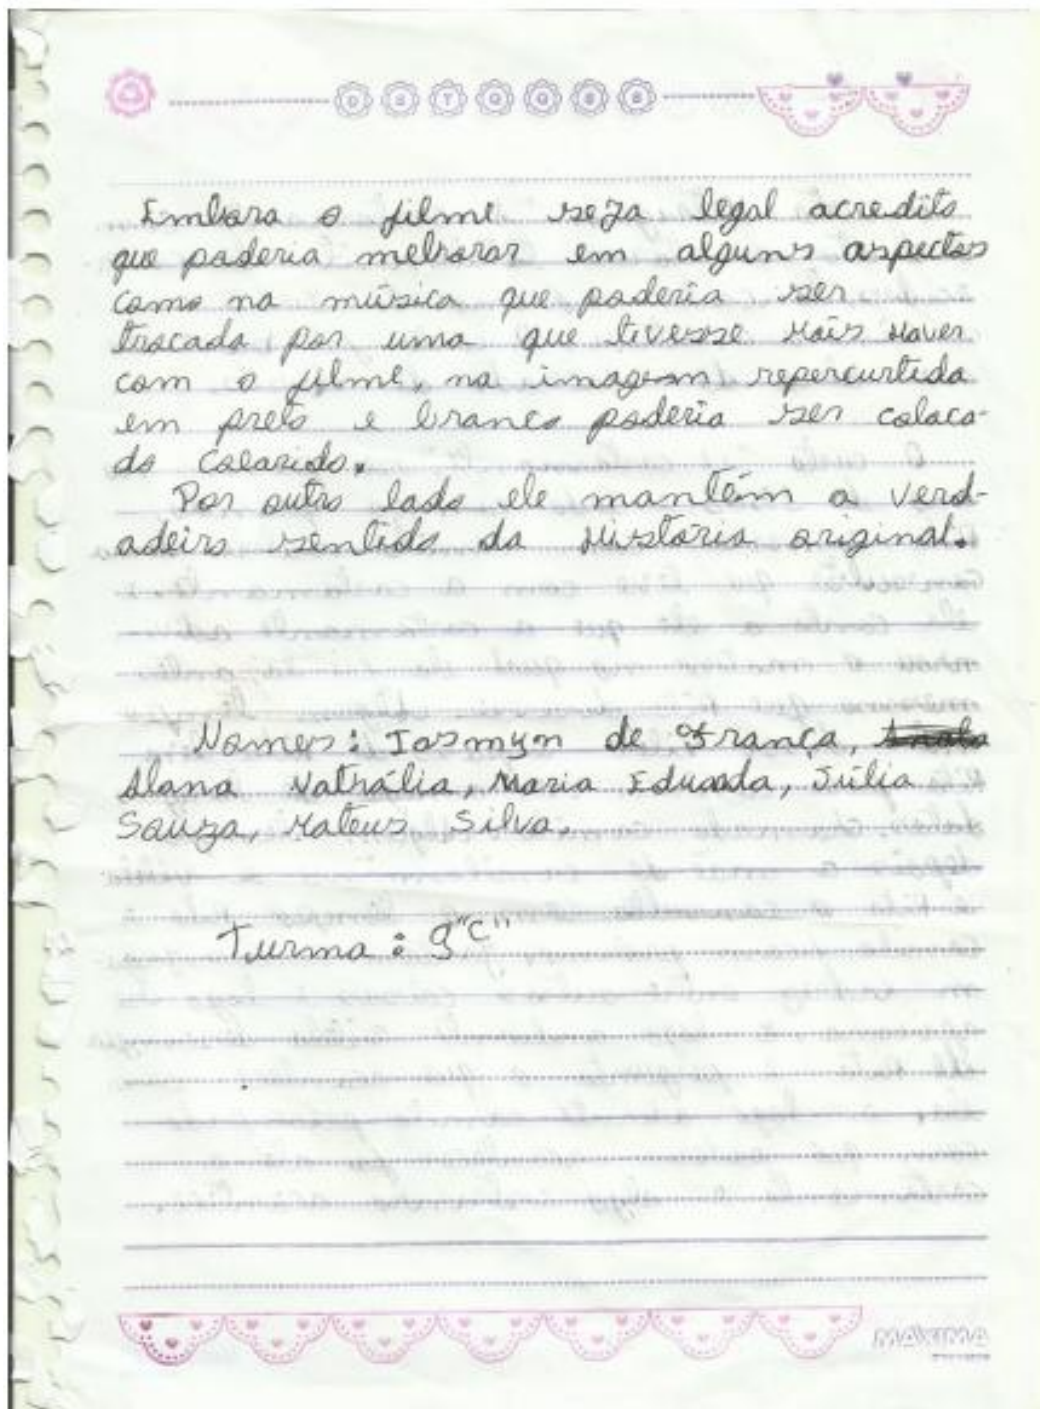 D S T Q Q S S
Embora o filme seja legal acredito
que poderia melhorar em alguns aspectos
como na música que poderia ser
trocada por uma que tivesse mais haver
com o filme, na imagem repercurtida
em preto e branco poderia ser coloca-
do colorido.
Por outro lado ele mantém o verd-
adeiro sentido da história original.
Nomes: Iasmyn de França,
Alana Nathália, Maria Eduarda, Júlia
Souza, Mateus Silva.
Turma: 9"C"
MÁXIMA